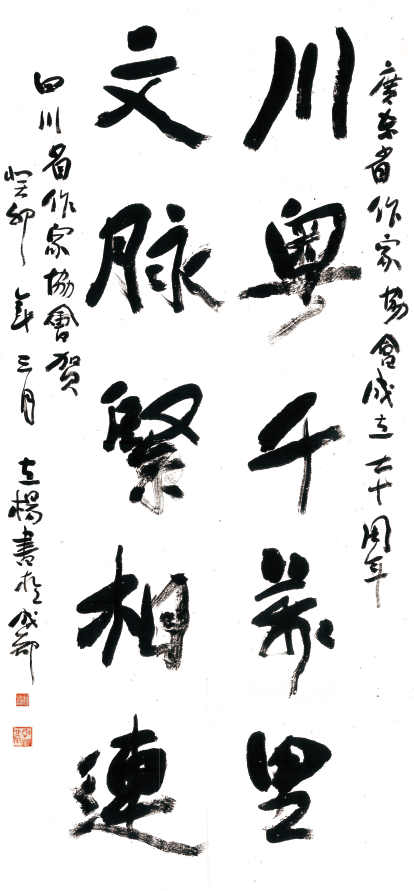 廣東省作家協會成立七十周年
川粵千萬里
文脈緊相連
四川省作家協會賀
癸卯年三月 立楊書於成都